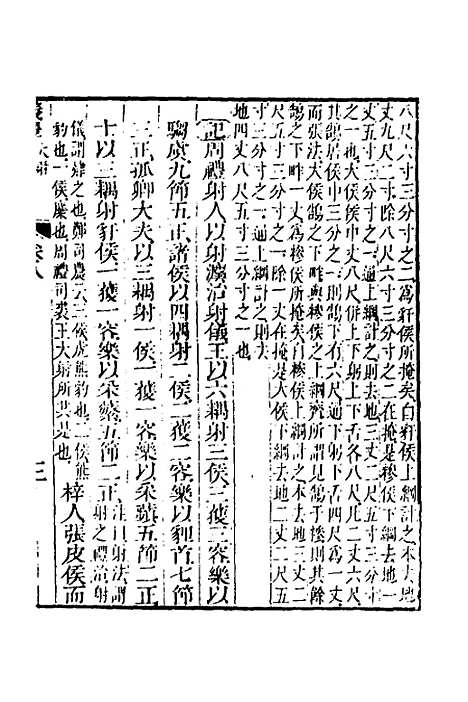 八尺六寸三分寸之二爲豻侯所掩矣自豻侯上綱計之本去地
丈九尺二寸除八尺六寸三分寸之二在掩是糝侯下綱去地一
丈五寸三分寸之一通上綱計之則去地三丈二尺五寸三分寸
之一也大侯侯中丈八尺併上下躬上下舌各八尺凡二丈六尺
其鵠居侯中三分之一則鵠下有六尺通下躬下舌四尺爲一丈
而張法大侯鵠之下畔與糝侯之上綱齊所謂見鵠于糝則其餘
鵠之下畔一丈爲糝侯所掩矣自糝侯上綱計之本去地三丈二
尺五寸三分寸之一除一丈在掩是大侯下綱去地二丈二尺五
寸三分寸之一通上綱計之則去
地四丈八尺五寸三分寸之一也
記周禮射人以射灋治射儀王以六耦射三侯三獲三容樂以
騶虞九節五正諸侯以四耦射二侯二獲二容樂以貍首七節
三正孤卿大夫以三耦射一侯一獲一容樂以采蘋五節二正
士以三耦射豻侯一獲一容樂以采蘩五節二正注曰射法謂
射之禮治射
儀謂肄之也鄭司農云三侯虎熊豹也二侯熊
豹也一侯麋也周禮司裘王大射所共是也
梓人張皮侯而
大射
卷八
三